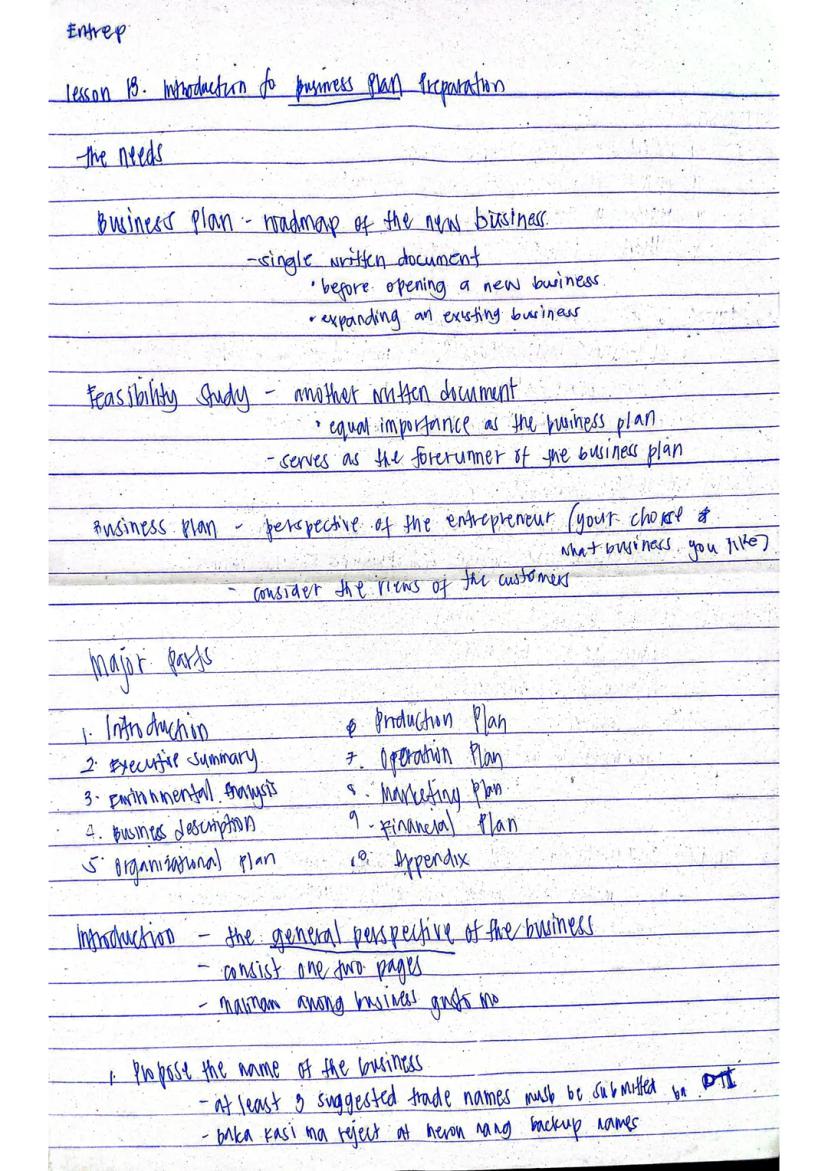 Entrep
Lesson 13. Introduction to Business Plan Preparation
The needs
Business Plan - roadmap of the new business.
- single written document
• before opening a new business.
• expanding an existing business
Feasibility Study - another written document
• equal importance as the business plan
- serves as the forerunner of the business plan
Business Plan - perspective of the entrepreneur (your choise
what business you like)
- consider the views of the customers
Major Parts
1. Introduction
2. Executive Summary
3. Environmental Analysis
4. Business description
5. Organizational Plan
6 Production Plan
7. Operation Plan
8. Marketing Plan
9. Financial Plan
10. Appendix
Introduction - the general perspective of the business
- consist one two pages
- business gusto mo
1. Propose the name of the business
- at least 3 suggested trade names must be submitted DTI
- baka kasi ma reject at meron nang backup names